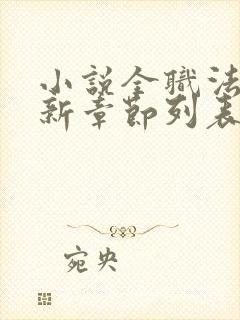 小说全職法
新章節列表
宛央